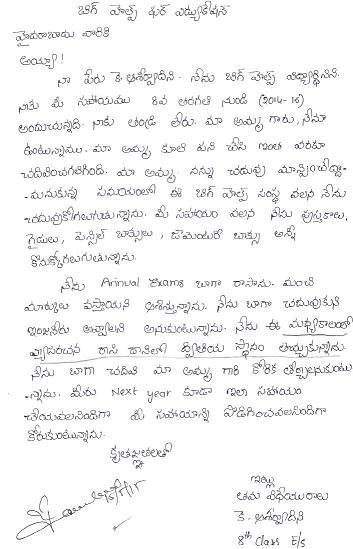 బిగ్ హెల్ప్ ఫర్ ఎడ్యుకేషన్
హైదరాబాదు వారికి
అయ్యా!
నా పేరు కె. ఆశీర్వాదిని. నేను బిగ్ హెల్ప్ విద్యార్థినిని.
నాకు మీ సహాయము 8వ తరగతి నుండి (2014-15)
అందుచున్నది. నాకు తండ్రి లేరు. మా అమ్మ గారు, నేను
ఉంటున్నాము. మా అమ్మ కూలి పని చేసి ఇంత వరకూ
చదివించగలిగింది. మా అమ్మ నన్ను చదువు మాన్పించేద్దా-
-మనుకున్న సమయంలో ఈ బిగ్ హెల్ప్ సంస్థ వలన నేను
చదువుకోగలుగుతున్నాను. మీ సహాయం వలన నేను పుస్తకాలు,
గైడులు, పెన్సిల్ బాక్సులు, జామెంటరీ బాక్సు అన్నీ
కొనుక్కోగలుగుతున్నాను.
నేను Annual Exams బాగా రాసాను. మంచి
మార్కులు వస్తాయని ఆశిస్తున్నాను. నేను బాగా చదువుకుని
ఇంజనీరు అవ్వాలని అనుకుంటున్నాను. నేను ఈ మధ్యకాలంలో
వ్యాసరచన రాసి దానిలో ద్వితీయ స్థానం తెచ్చుకున్నాను.
నేను బాగా చదివి మా అమ్మ గారి కోరిక తీర్చాలనుకుంటు
-న్నాను. మీరు Next year కూడా ఇలా సహాయం
చేయవలసిందిగా మీ సహాయాన్ని పొడిగించవలసిందిగా
కోరుకుంటున్నాను.
కృతజ్ఞతలతో
ఇట్లు
తమ విధేయురాలు
కె. ఆశీర్వాదిని
8th Class E/S